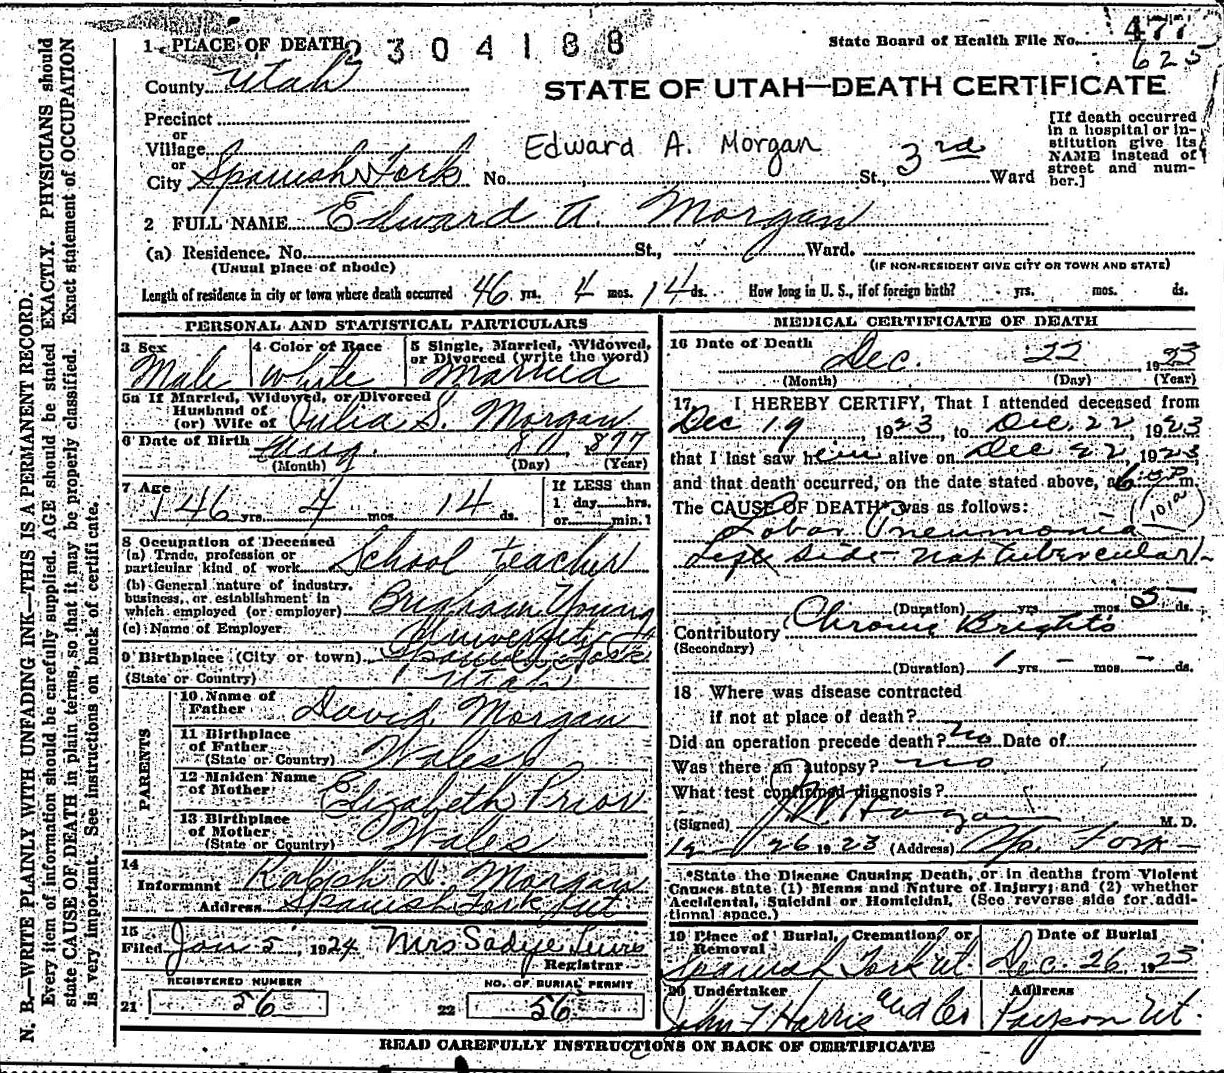 477
State Board of Health File No.
625
1 PLACE OF DEATH 2304188
County Utah
STATE OF UTAH—DEATH CERTIFICATE
Precinct
or
Village
or
City Spanish Fork No. St., 3rd Ward
Edward A. Morgan
[If death occurred in a hospital or in-
stitution give its
NAME instead of
street and num-
ber.]
2 FULL NAME Edward A. Morgan
(a) Residence. No. St., Ward.
(Usual place of abode) (IF NON-RESIDENT GIVE CITY OR TOWN AND STATE)
Length of residence in city or town where death occurred 46 yrs. 4 mos. 14 ds. How long in U. S., if of foreign birth? yrs. mos. ds.
PERSONAL AND STATISTICAL PARTICULARS
3 Sex 4 Color of Race 5 Single, Married, Widowed,
or Divorced (write the word)
Male White Married
5a If Married, Widowed, or Divorced
Husband of
(or) Wife of Julia S. Morgan
6 Date of Birth Aug. 8 1877
(Month) (Day) (Year)
7 Age If LESS than
46 yrs. 4 mos. 14 ds. 1 day hrs.
or min.
8 Occupation of Deceased
(a) Trade, profession or
particular kind of work School teacher
(b) General nature of industry,
business, or establishment in
which employed (or employer) Brigham Young
(c) Name of Employer University
9 Birthplace (City or town) Spanish Fork
(State or Country) Utah
PARENTS
10 Name of
Father David Morgan
11 Birthplace
of Father Wales
(State or Country)
12 Maiden Name
of Mother Elizabeth Prior
13 Birthplace
of Mother Wales
(State or Country)
14
Informant Ralph D. Morgan
Address Spanish Fork Ut
15
Filed Jan 5, 1924 Mrs Sadye Lewis
Registrar
REGISTERED NUMBER NO. OF BURIAL PERMIT
21 56 22 56
MEDICAL CERTIFICATE OF DEATH
16 Date of Death
Dec. 22 1923
(Month) (Day) (Year)
17 I HEREBY CERTIFY, That I attended deceased from
Dec 19, 1923, to Dec. 22, 1923
that I last saw him alive on Dec 22, 1923,
and that death occurred, on the date stated above, at m.
The CAUSE OF DEATH* was as follows:
Lobar Pneumonia
101a
Left side - not tubercular
(Duration) yrs. mos. 5 ds.
Contributory Chronic Brights
(Secondary)
(Duration) 1 yrs. — mos. — ds.
18 Where was disease contracted
if not at place of death?
Did an operation precede death? no Date of
Was there an autopsy? no
What test confirmed diagnosis?
(Signed) M. D.
12 26 1923 (Address) Sp. Fork
*State the Disease Causing Death, or in deaths from Violent
Causes state (1) Means and Nature of Injury; and (2) whether
Accidental, Suicidal or Homicidal. (See reverse side for addi-
tional space.)
19 Place of Burial, Cremation, or Date of Burial
Removal
Spanish Fork Ut Dec. 26, 1923
20 Undertaker Address
John T Harris and Co Payson Ut.
READ CAREFULLY INSTRUCTIONS ON BACK OF CERTIFICATE
N. B.—WRITE PLAINLY WITH UNFADING INK—THIS IS A PERMANENT RECORD.
Every item of information should be carefully supplied. AGE should be stated EXACTLY. PHYSICIANS should
state CAUSE OF DEATH in plain terms, so that it may be properly classified. Exact statement of OCCUPATION
is very important. See instructions on back of certificate.